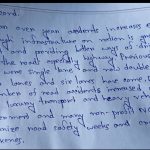 ord.
an over year accidents increases e
ough indrastructure on nation is go
and providing better ways of dri
the roads espeially highway. Previous
were single lane and as double
lanes and six lanes have come.
mber of road accidents increased
luxury transport and heavy
ernment and many non-profit NG
anize road safety weeks and
keness.